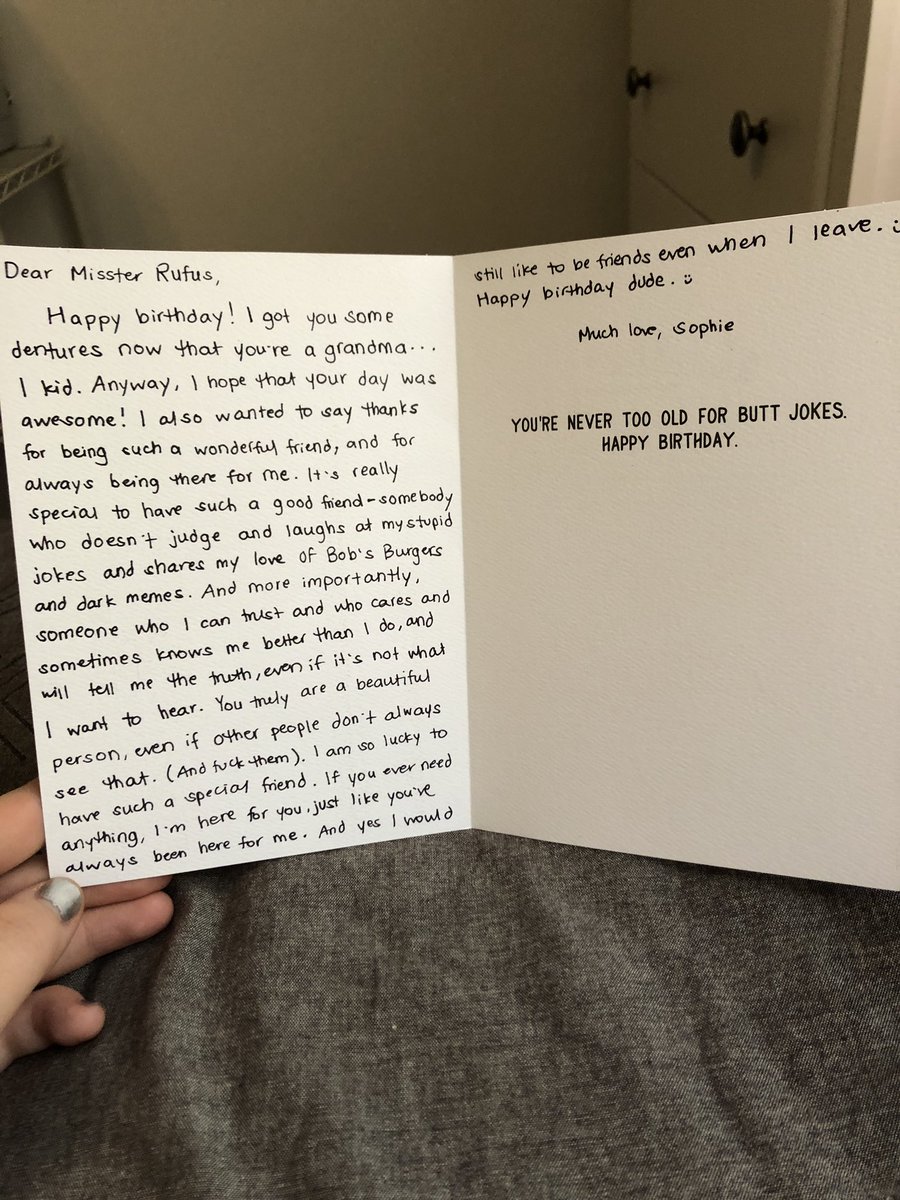 Dear Misster Rufus,
Happy birthday! I got you some
dentures now that you're a grandma...
I kid. Anyway, I hope that your day was
awesome! I also wanted to say thanks
for being such a wonderful friend, and for
always being there for me. It's really
special to have such a good friend-somebody
who doesn't judge and laughs at my stupid
jokes and shares my love of Bob's Burgers
and dark memes. And more importantly,
someone who I can trust and who cares and
sometimes knows me better than I do, and
will tell me the truth, even if it's not what
I want to hear. You truly are a beautiful
person, even if other people don't always
see that. (And fuck them). I am so lucky to
have such a special friend. If you ever need
anything, I'm here for you, just like you've
always been here for me. And yes I would
still like to be friends even when I leave. :)
Happy birthday dude. :)
Much love, Sophie
YOU'RE NEVER TOO OLD FOR BUTT JOKES.
HAPPY BIRTHDAY.